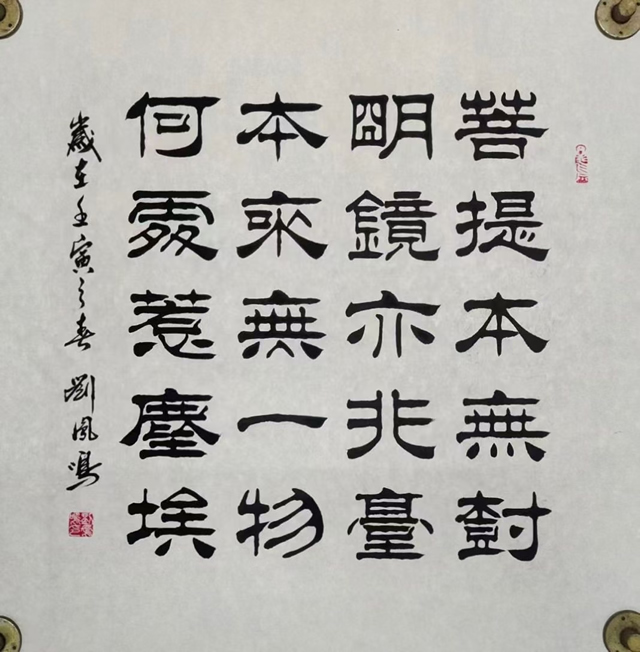 菩提本無樹
朙鏡亦非臺
本來無一物
何處惹塵埃
歲在壬寅之春 劉風鳴